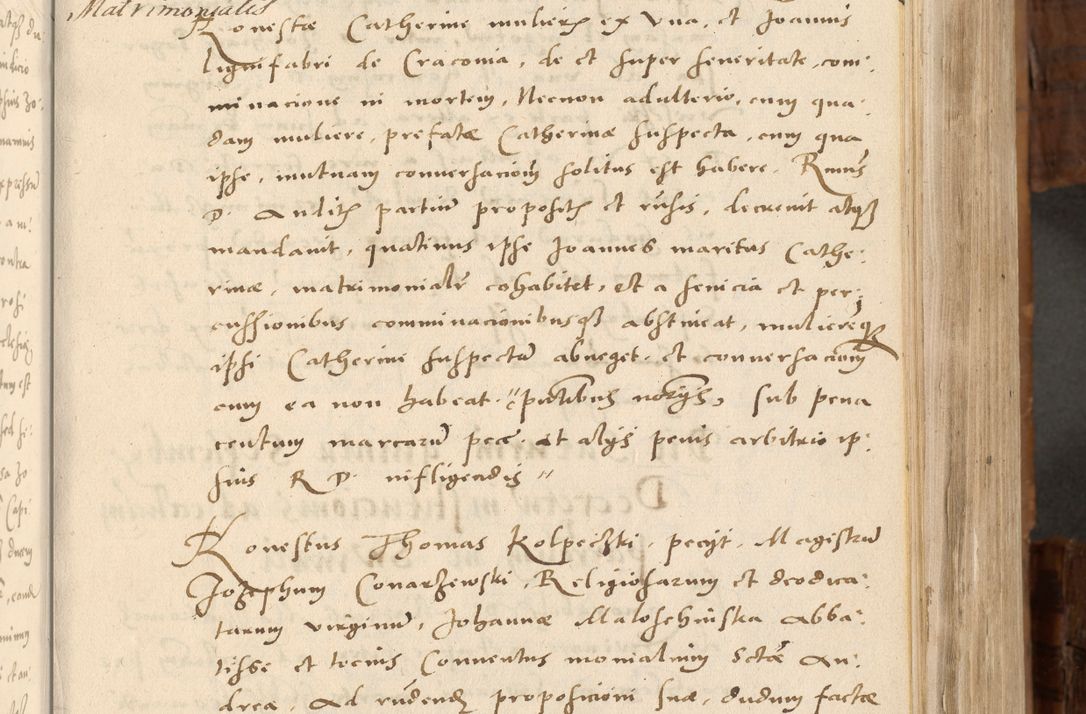 Matrimonialis
Honestæ Catherine mulierꝭ ex Vna, et Joannis
lignifabri de Craconia, de et super seueritate, com:
minacione in mortem, Necnon adulterio, cum qua:
dam muliere, prefatæ Catherinæ suspecta, cum qua
ipse, mutuam conuersacioñ solitus est habere. Rmus
D. Auditꝭ partiũ propositꝭ et rusis, decreuit atqꝫ
mandauit, quatinus ipse Joannes maritus Cathe:
rinæ, matrimonialr cohabitet, et a seuicia et per:
cussionibus comminacionibusqꝫ abstineat, mulieremqꝫ
ipsi Catherine suspectã abneget, et conuersacionẽ
cum ea non habeat. sub pena
centum marcarũ pecæ. et alijs penis arbitrio ip:
sius R D. infligendis //
Honestus Thomas Kolpeczki, pecijt, Magistrũ
Josephum Conarzewski, Religiosarum et deodica:
tarum virginũ, Johannæ Maloschinska abba:
tisse et tocius Conuentus monialium Sctæ An:
dreæ, Ad rũdendꝫ proposicioni suæ, dudum factæ